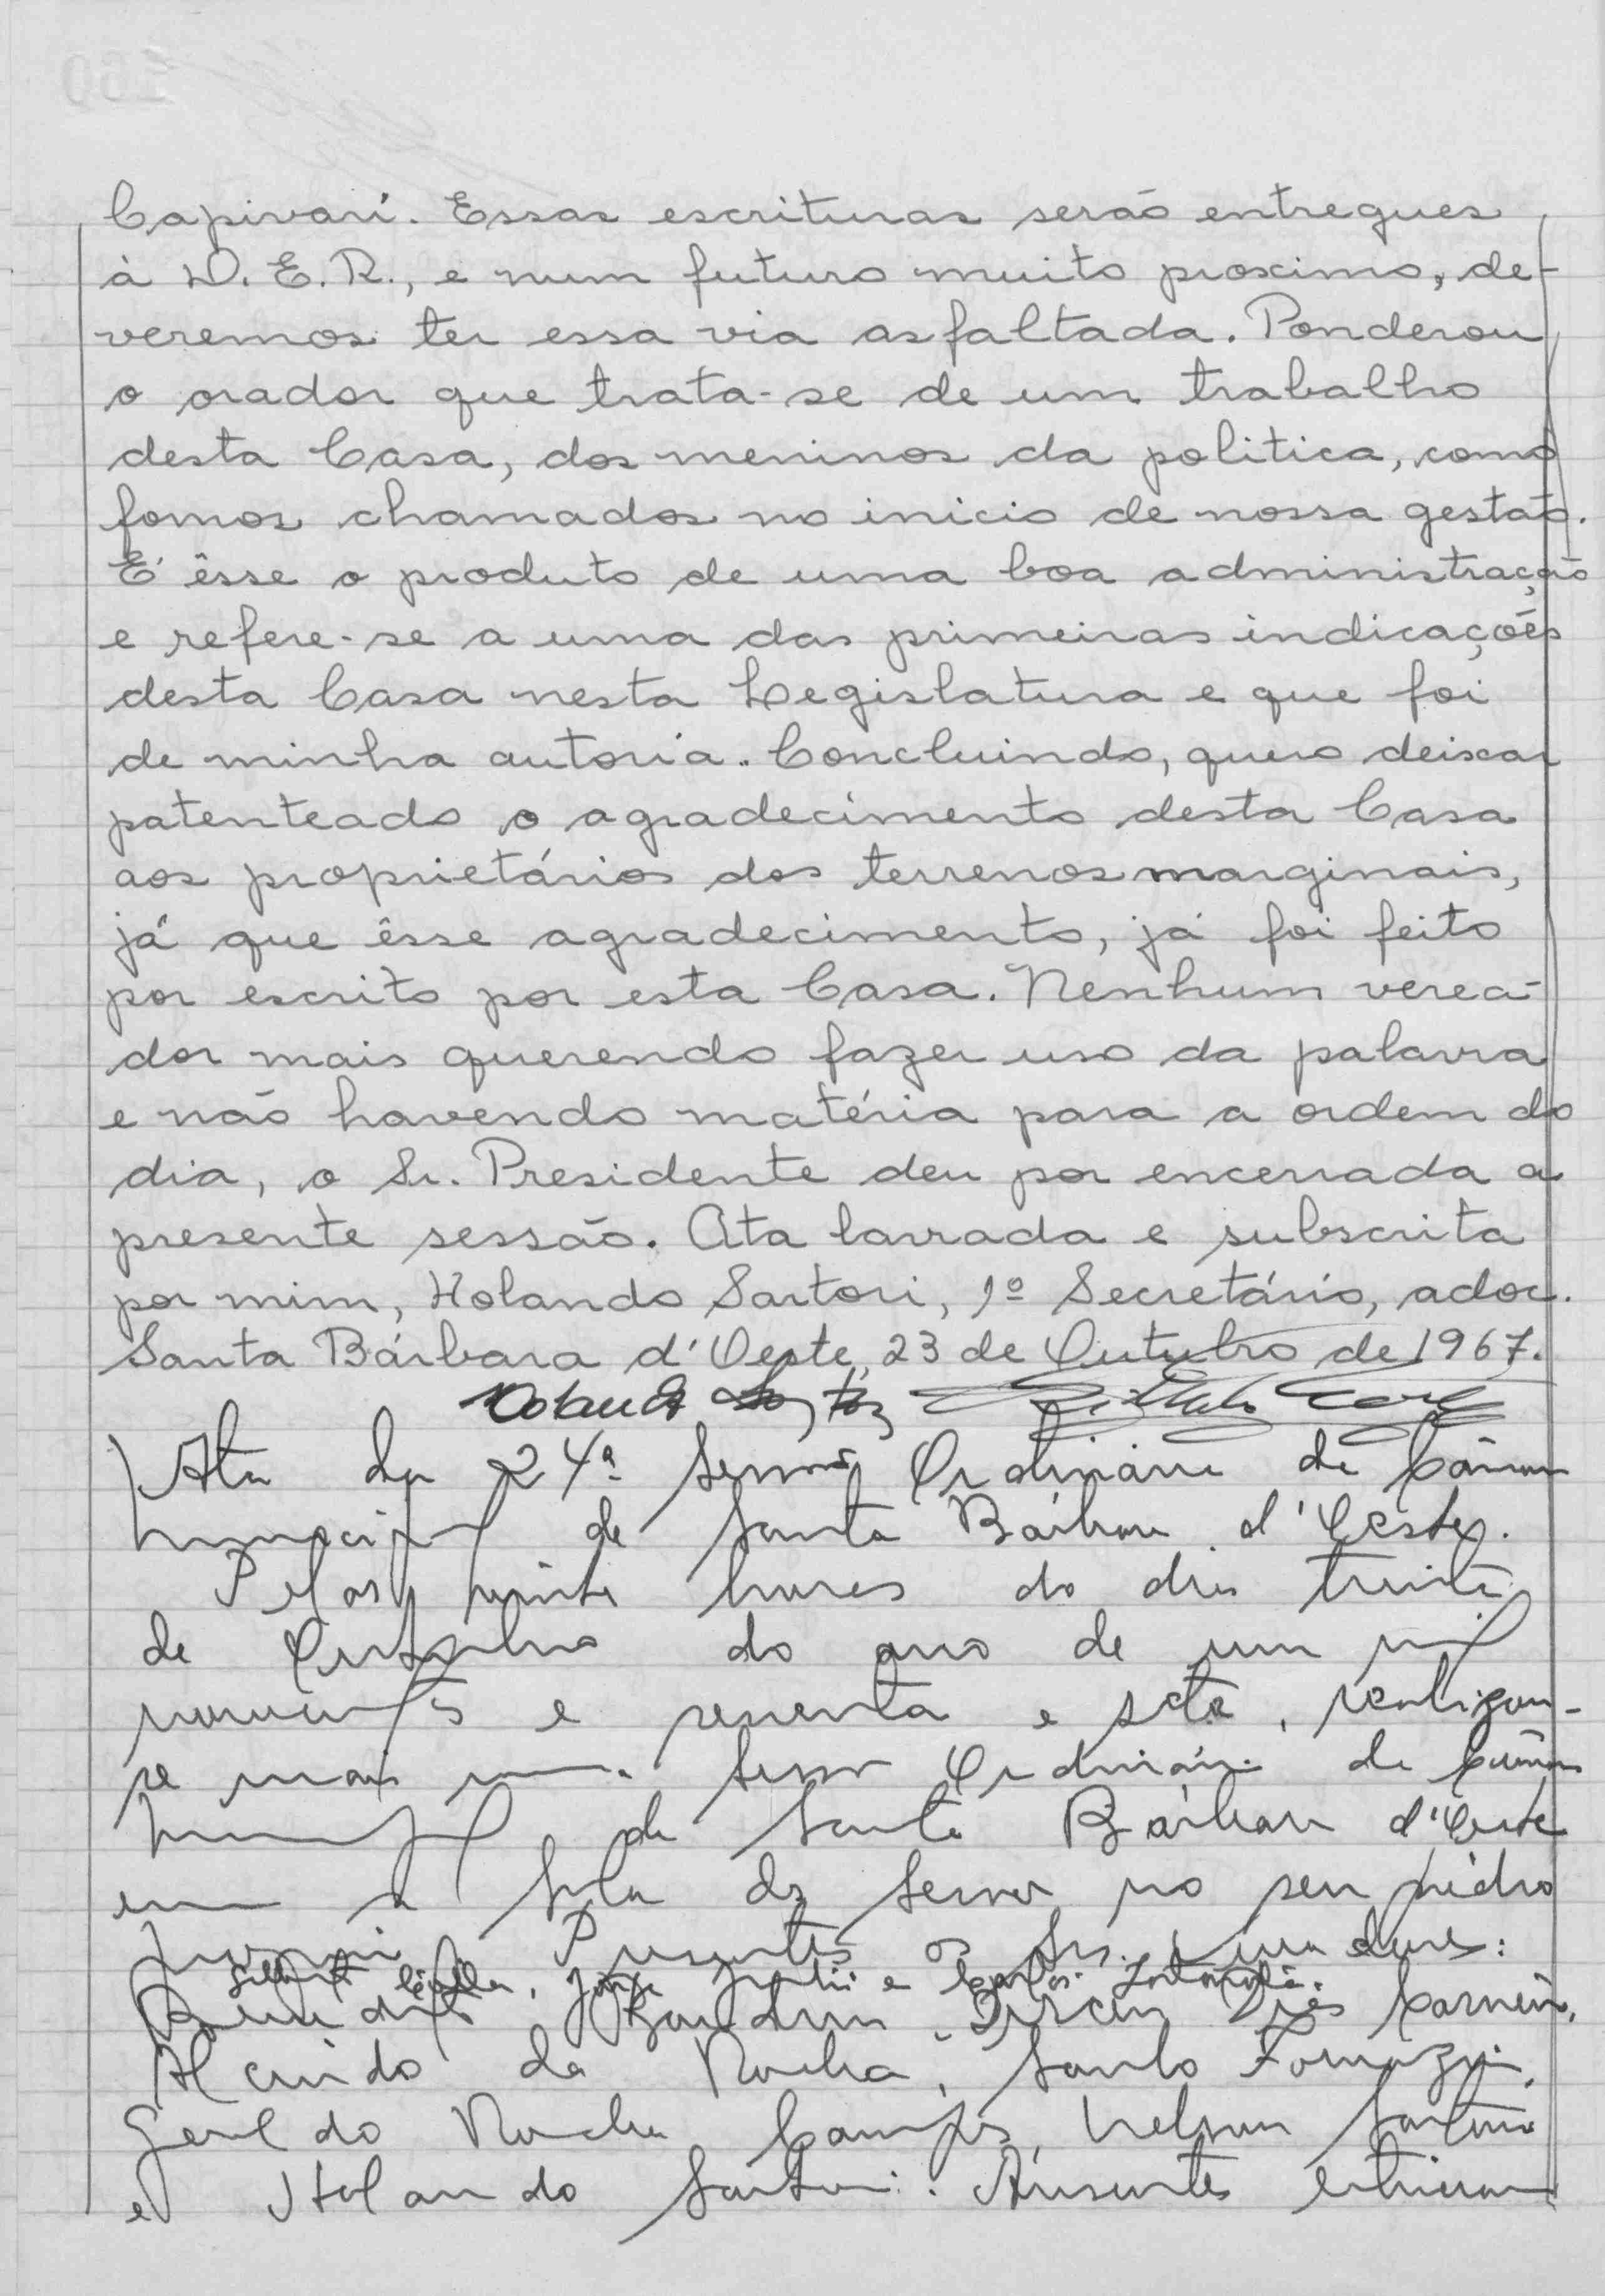 Capivari. Essas escrituras serão entregues
à D.E.R., e num futuro muito proximo, de-
veremos ter essa via asfaltada. Ponderou
o orador que trata-se de um trabalho
desta Casa, dos meninos da politica, como
fomos chamados no inicio de nossa gestão.
E' êsse o produto de uma boa administração
e refere-se a uma das primeiras indicações
desta Casa nesta Legislatura e que foi
de minha autoria. Concluindo, quero deixar
patenteado o agradecimento desta Casa
aos proprietários dos terrenos marginais,
já que êsse agradecimento, já foi feito
por escrito por esta Casa. Nenhum verea-
dor mais querendo fazer uso da palavra
e não havendo matéria para a ordem do
dia, o Sr. Presidente deu por encerrada a
presente sessão. Ata lavrada e subscrita
por mim, Holando Sartori, 1º Secretário, adoc.
Santa Bárbara d'Oeste, 23 de Outubro de 1967.
Ata da 24ª Sessão Ordinária da Câmara
Municipal de Santa Bárbara d'Oeste.
Pelas vinte horas do dia trinta
de Outubro do ano de um mil
novecentos e sessenta e sete, realizou-
se mais uma Sessão Ordinária da Câmara
Municipal de Santa Bárbara d'Oeste
em a Sala de Sessões no seu prédio
próprio. Presentes os Srs. Vereadores:
Jorge e Carlos
Benedito Dirceu Dias Carneiro,
Alcindo da Rocha, Santo Fornazin,
Geraldo Rocha Campos, Nelson Sartori
e Holando Sartori. Ausentes estiveram